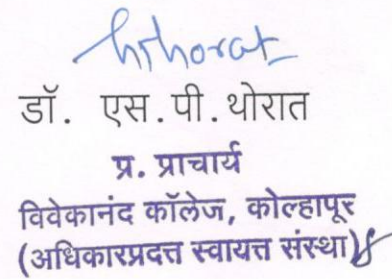 डॉ. एस.पी.थोरात
प्र. प्राचार्य
विवेकानंद कॉलेज, कोल्हापूर
(अधिकारप्रदत्त स्वायत्त संस्था)